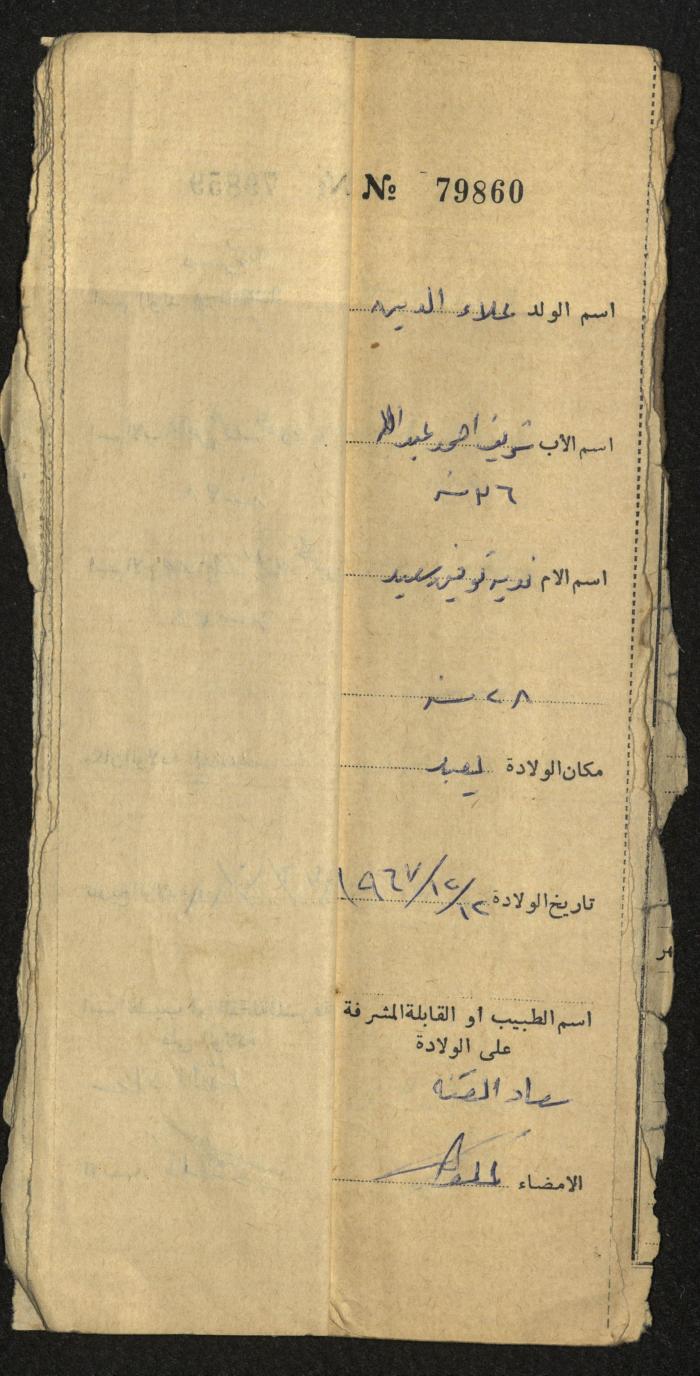 № 79860
اسم الولد علاء الدين
اسم الأب شريف احمد عبد الله
٣٦ سنه
اسم الام توفيق سعيد
٢٨ سنه
مكان الولادة يعبد
تاريخ الولادة ١٩٦٧/١٢/١٢
اسم الطبيب او القابلة المشرفة
على الولادة
سعاد
الامضاء